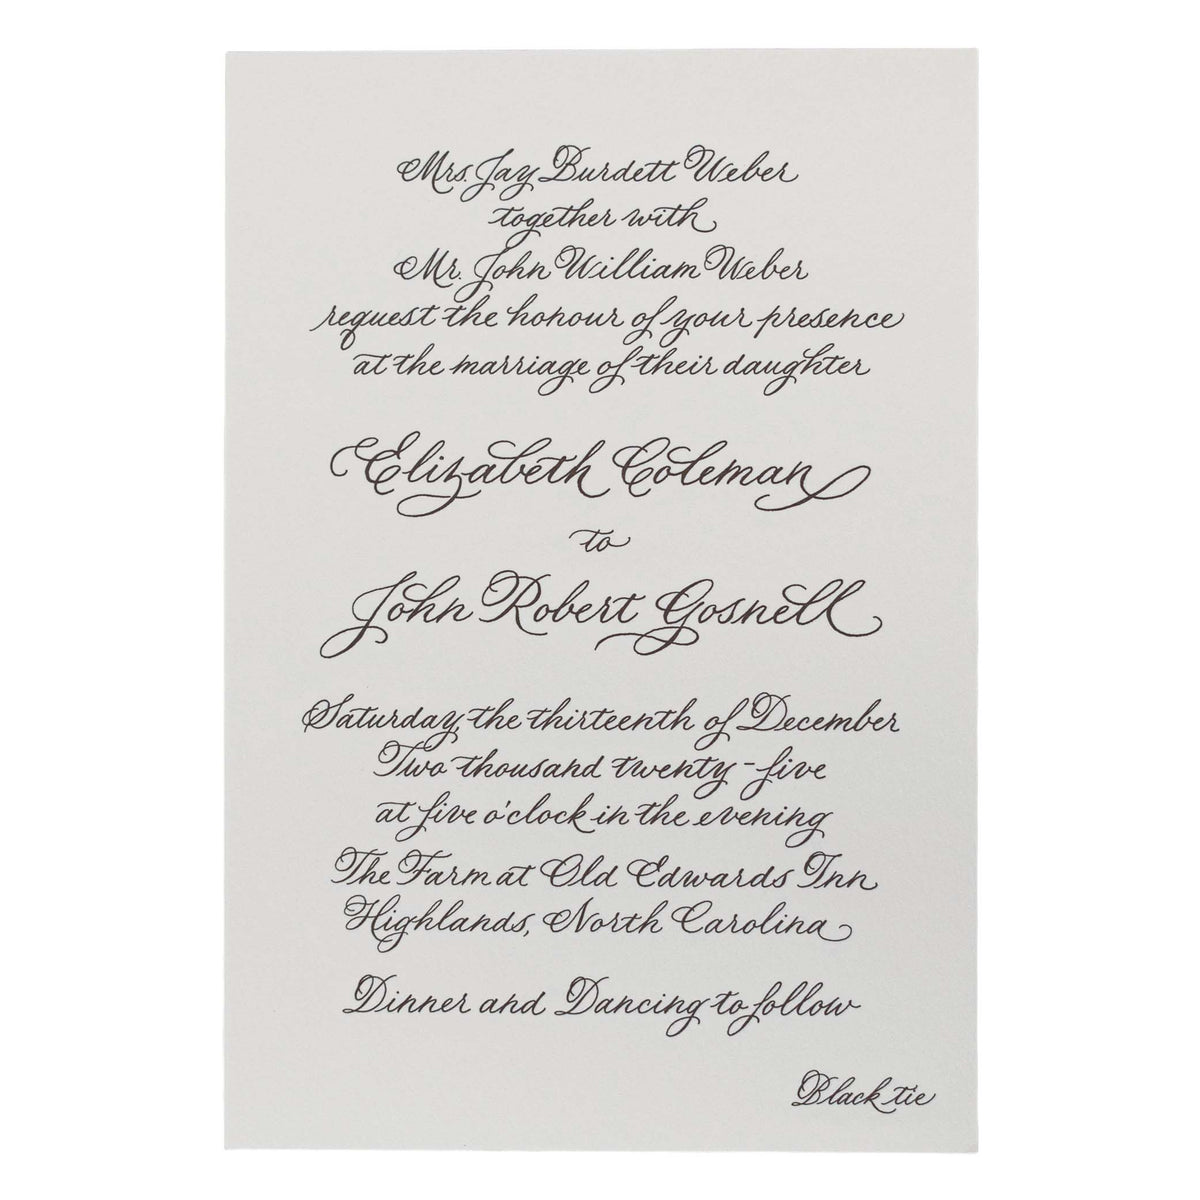 Mrs. Jay Burdett Weber
together with
Mr. John William Weber
request the honour of your presence
at the marriage of their daughter
Elizabeth Coleman
to
John Robert Gosnell
Saturday, the thirteenth of December
Two thousand twenty-five
at five o'clock in the evening
The Farm at Old Edwards Inn
Highlands, North Carolina
Dinner and Dancing to follow
Black tie